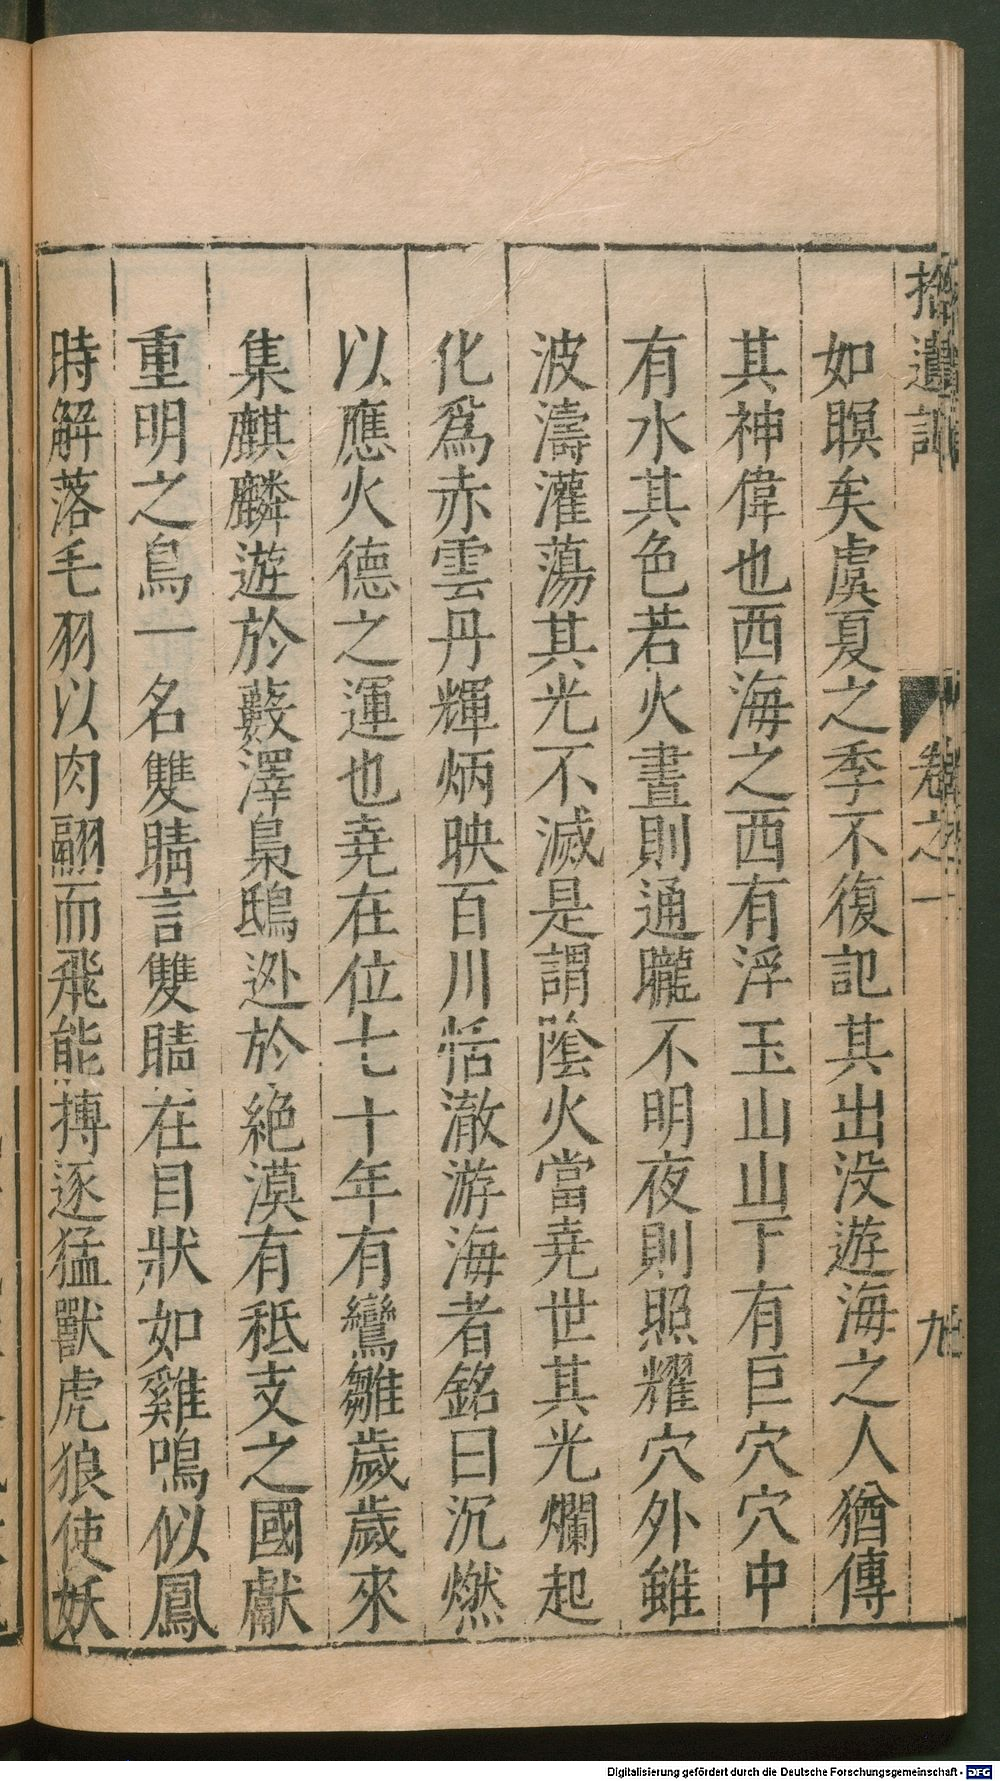 拾遺記
卷之一
九
如瞑矣虞夏之季不復記其出没遊海之人猶傳
其神偉也西海之西有浮玉山山下有巨穴穴中
有水其色若火晝則通曨不明夜則照耀穴外雖
波濤灌蕩其光不滅是謂陰火當堯世其光爛起
化爲赤雲丹輝炳映百川恬澈游海者銘曰沉燃
以應火德之運也堯在位七十年有鸞雛歲歲來
集麒麟遊於藪澤梟鴟逃於絶漠有秪支之國獻
重明之鳥一名雙睛言雙睛在目狀如雞鳴似鳳
時解落毛羽以肉翮而飛能搏逐猛獸虎狼使妖
Digitalisierung gefördert durch die Deutsche Forschungsgemeinschaft - DFG